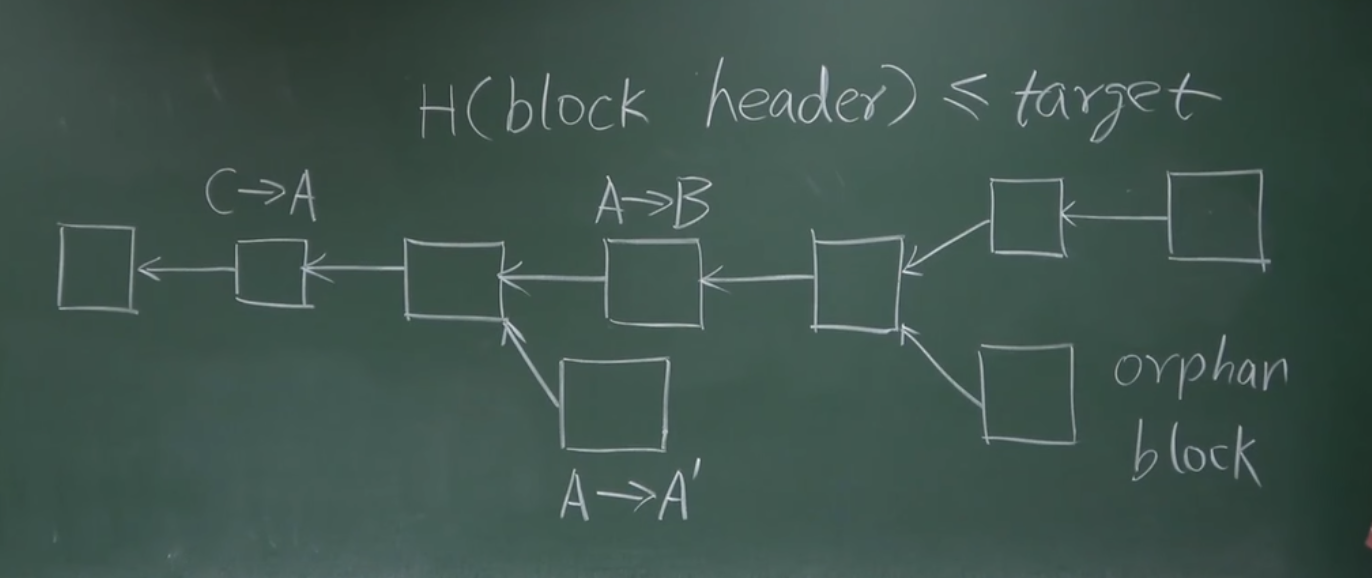 H(block header) ≤ target
C→A
A→B
A→A'
orphan
block